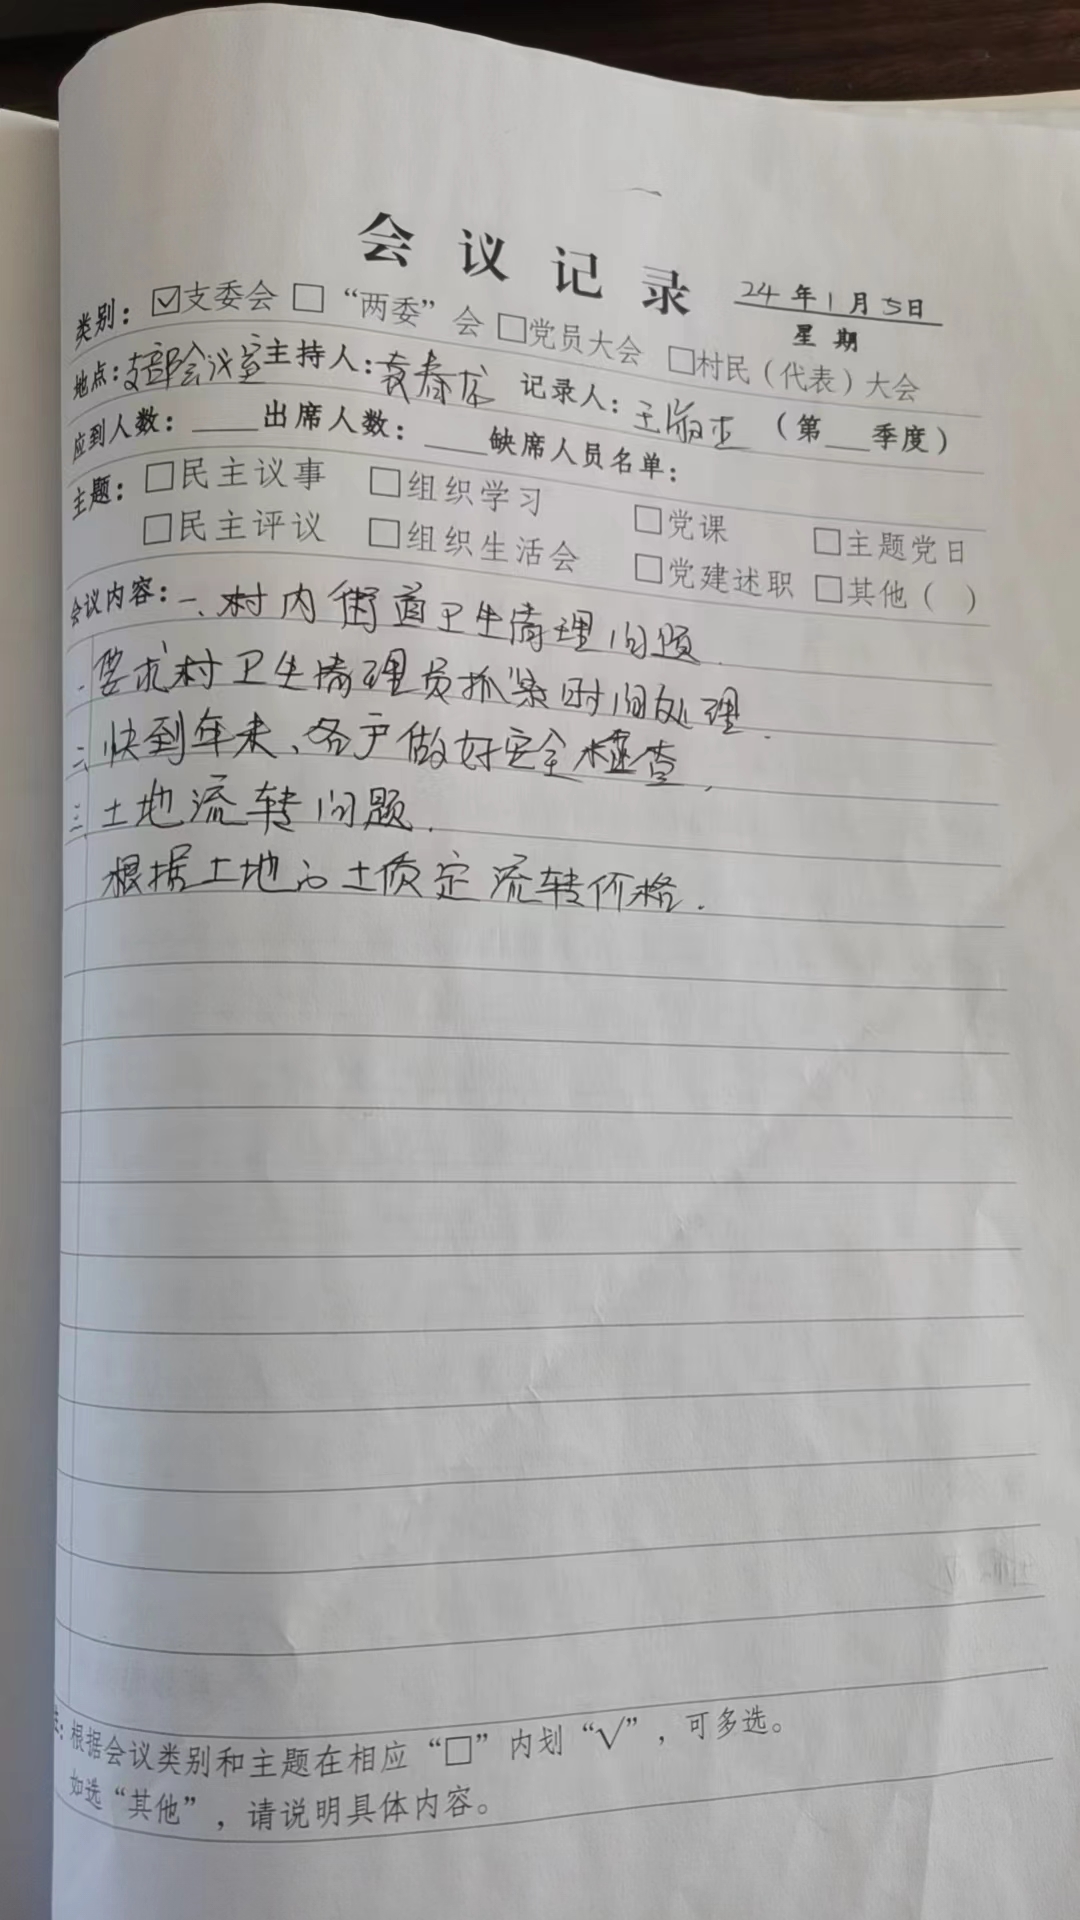 会议记录
24年1月5日
星期
类别：☑支委会 □“两委”会 □党员大会 □村民（代表）大会
地点：支部会议室 主持人：袁春 记录人：王 （第__季度）
应到人数：____出席人数：____缺席人员名单：
主题：□民主议事 □组织学习 □党课 □主题党日
□民主评议 □组织生活会 □党建述职 □其他（ ）
会议内容：一、村内街道卫生清理问题.
要求村卫生清理员抓紧时间处理.
二、快到年末、各户做好安全检查，
三、土地流转问题.
根据土地的土质定流转价格.
注：根据会议类别和主题在相应“□”内划“√”，可多选。
如选“其他”，请说明具体内容。